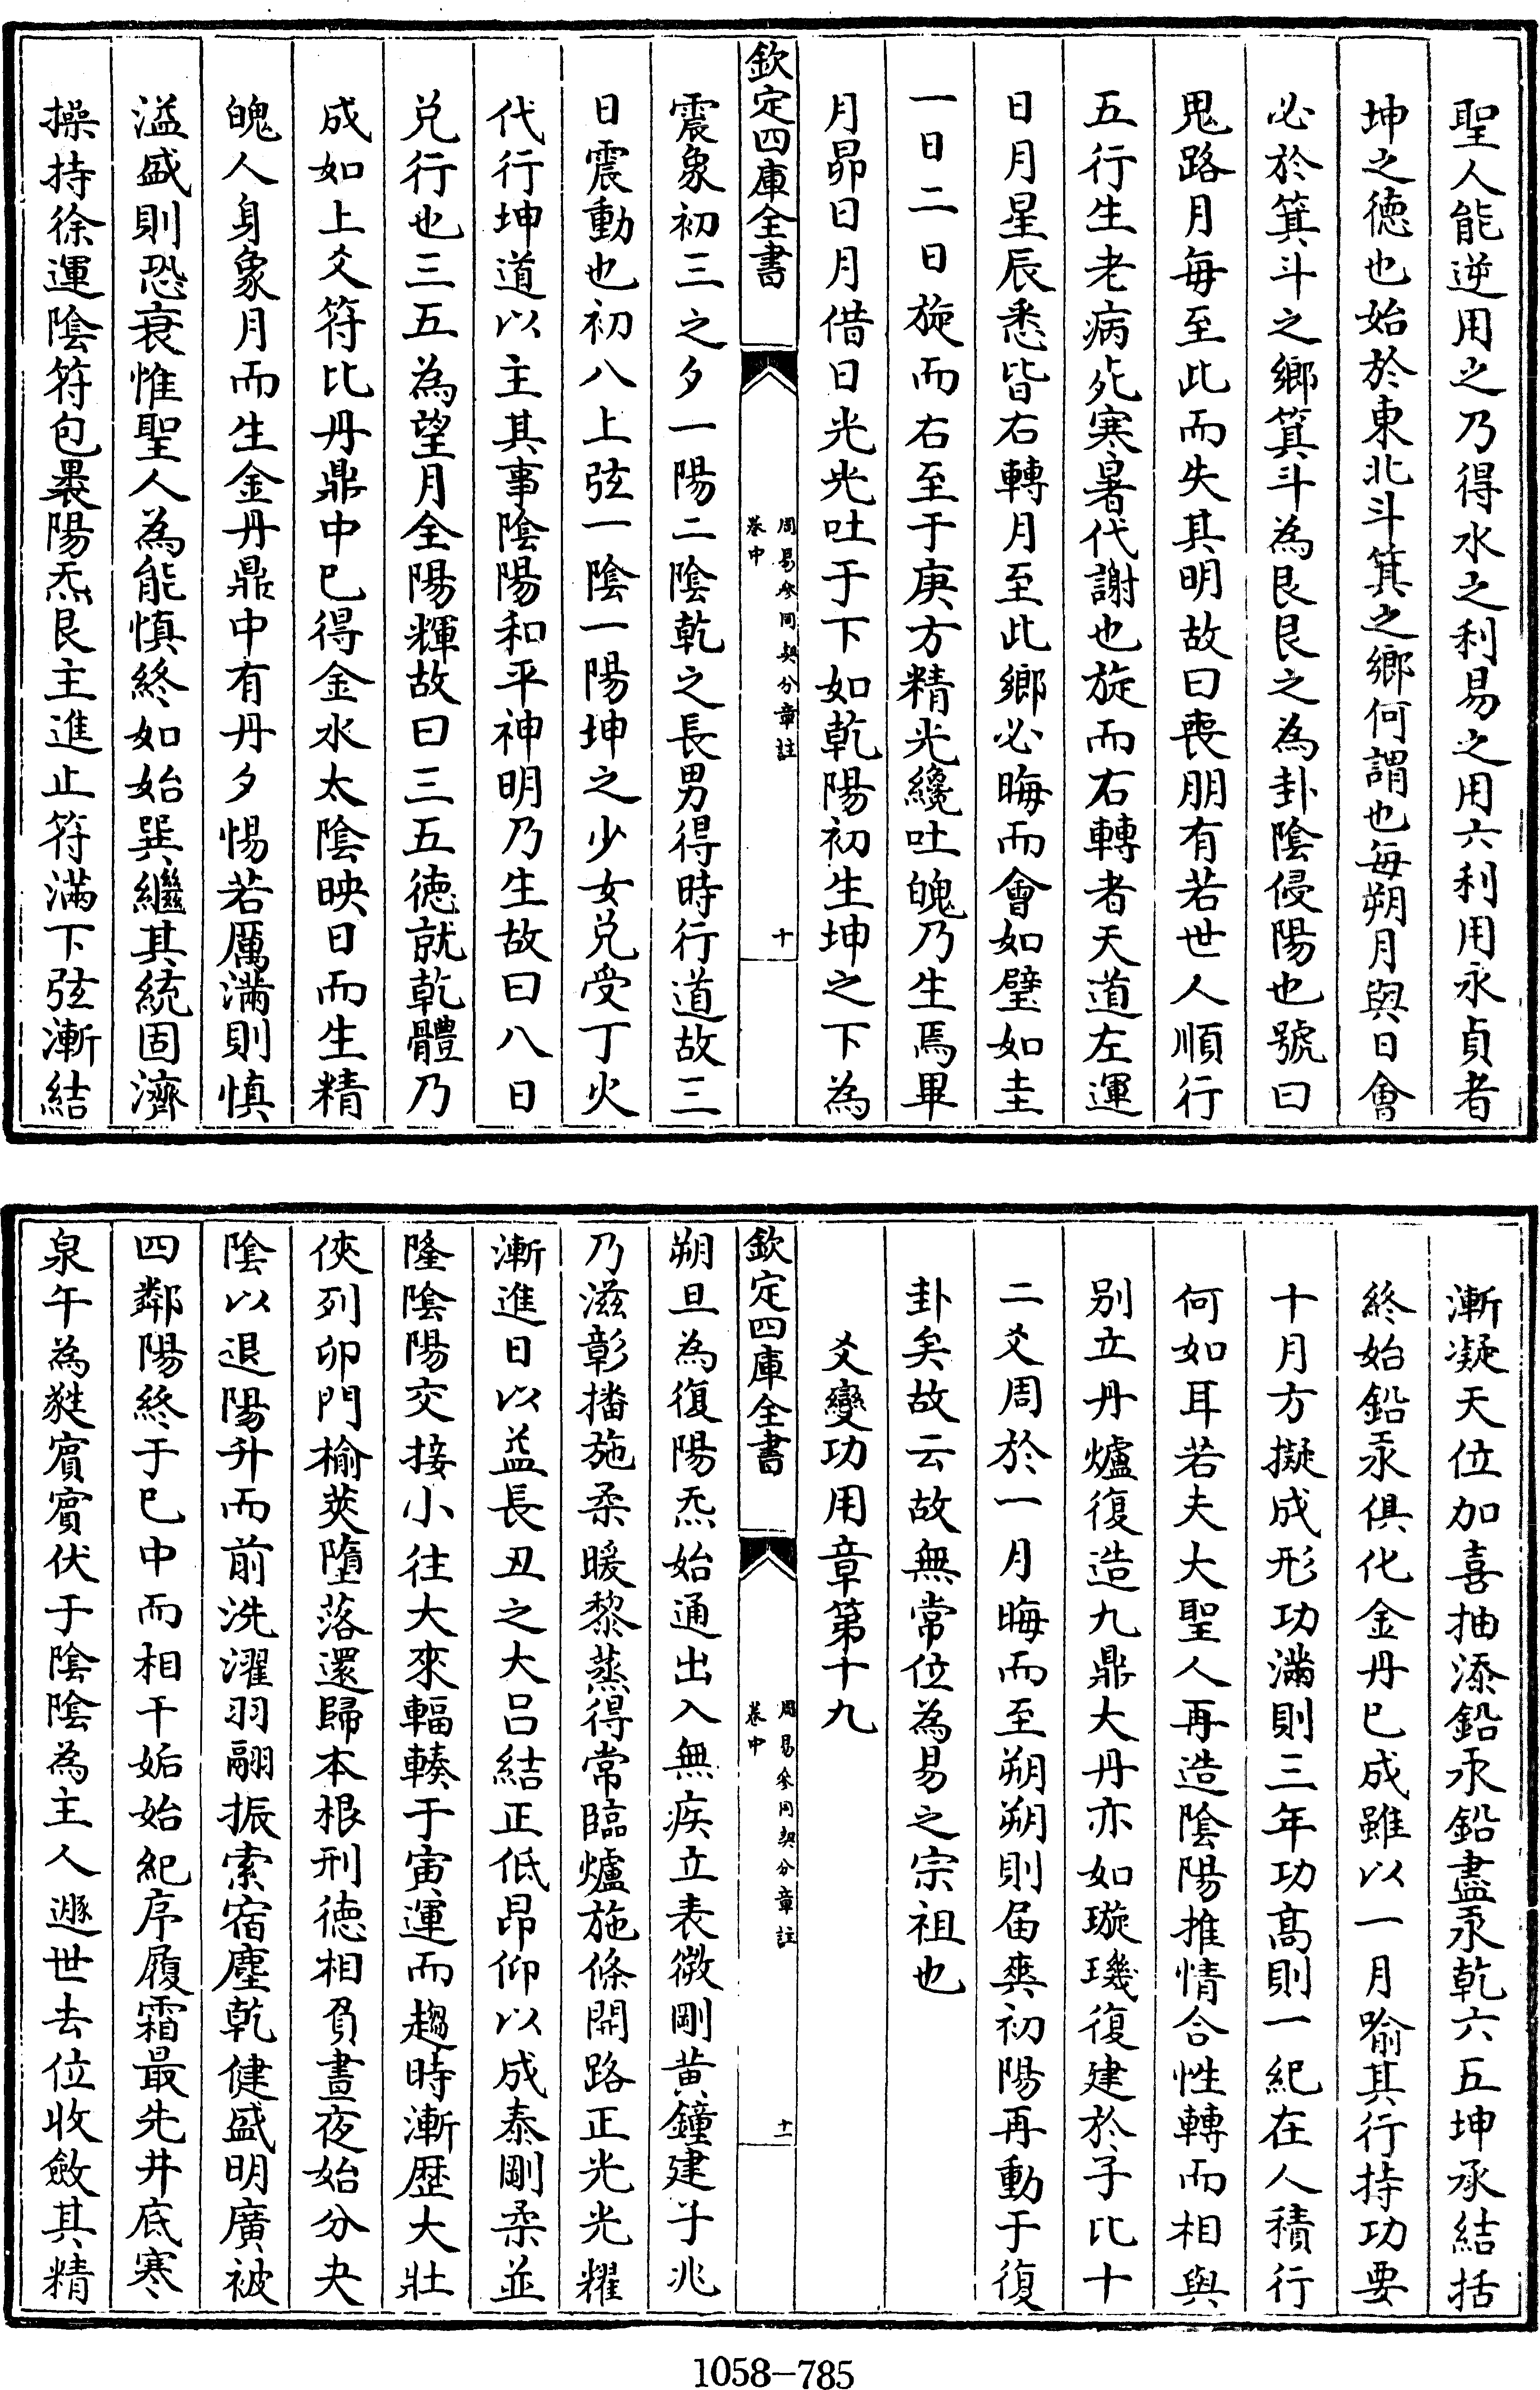 聖人能逆用之乃得水之利易之用六利用永貞者
坤之徳也始於東北斗箕之鄉何謂也每朔月與日會
必於箕斗之鄉箕斗為艮艮之為卦陰侵陽也號曰
鬼路月每至此而失其明故曰喪朋有若世人順行
五行生老病死寒暑代謝也旋而右轉者天道左運
日月星辰悉皆右轉月至此鄉必晦而會如璧如圭
一日二日旋而右至于庚方精光纔吐魄乃生焉畢
月昴日月借日光光吐于下如乾陽初生坤之下為
欽定四庫全書
周易參同契分章註
卷中
十
震象初三之夕一陽二陰乾之長男得時行道故三
日震動也初八上弦一陰一陽坤之少女兌受丁火
代行坤道以主其事陰陽和平神明乃生故曰八日
兌行也三五為望月全陽輝故曰三五徳就乾體乃
成如上爻符比丹鼎中已得金水太陰映日而生精
魄人身象月而生金丹鼎中有丹夕惕若厲滿則慎
溢盛則恐衰惟聖人為能慎終如始巽繼其統固濟
操持徐運陰符包裹陽炁艮主進止符滿下弦漸結
漸凝天位加喜抽添鉛汞鉛盡汞乾六五坤承結括
終始鉛汞俱化金丹已成雖以一月喻其行持功要
十月方擬成形功滿則三年功髙則一紀在人積行
何如耳若夫大聖人再造陰陽推情合性轉而相與
别立丹爐復造九鼎大丹亦如璇璣復建於子比十
二爻周於一月晦而至朔朔則届爽初陽再動于復
卦矣故云故無常位為易之宗祖也
爻變功用章第十九
欽定四庫全書
周易參同契分章註
卷中
十一
朔旦為復陽炁始通出入無疾立表微剛黄鐘建子兆
乃滋彰播施柔暖黎蒸得常臨爐施條開路正光光耀
漸進日以益長丑之大呂結正低昂仰以成泰剛柔並
隆陰陽交接小往大來輻輳于寅運而趨時漸歴大壯
俠列卯門榆莢墮落還歸本根刑徳相負晝夜始分夬
陰以退陽升而前洗濯羽翮振索宿塵乾健盛明廣被
四鄰陽終于巳中而相干姤始紀序履霜最先井底寒
泉午為蕤賓賓伏于陰陰為主人遯世去位收斂其精
1058-785